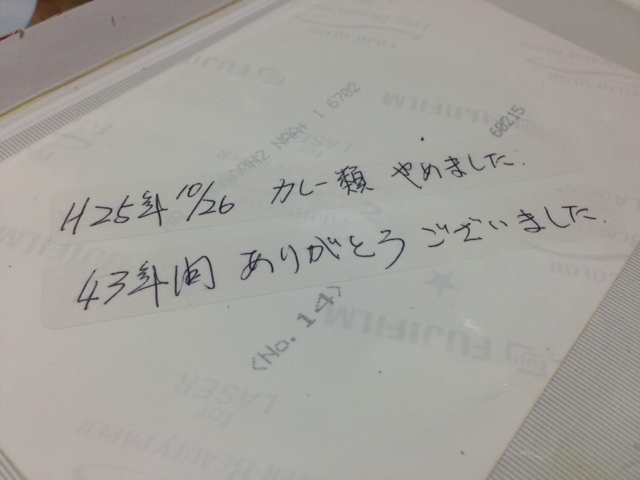 H25年 10/26 カレー類 やめました.
43年間 ありがとう ございました.
FUJIFILM
FUJICOLOR
NAA+ 1 6702
60215
<No. 14>
FUJIFILM
for LASER
BEAUTY PAPER